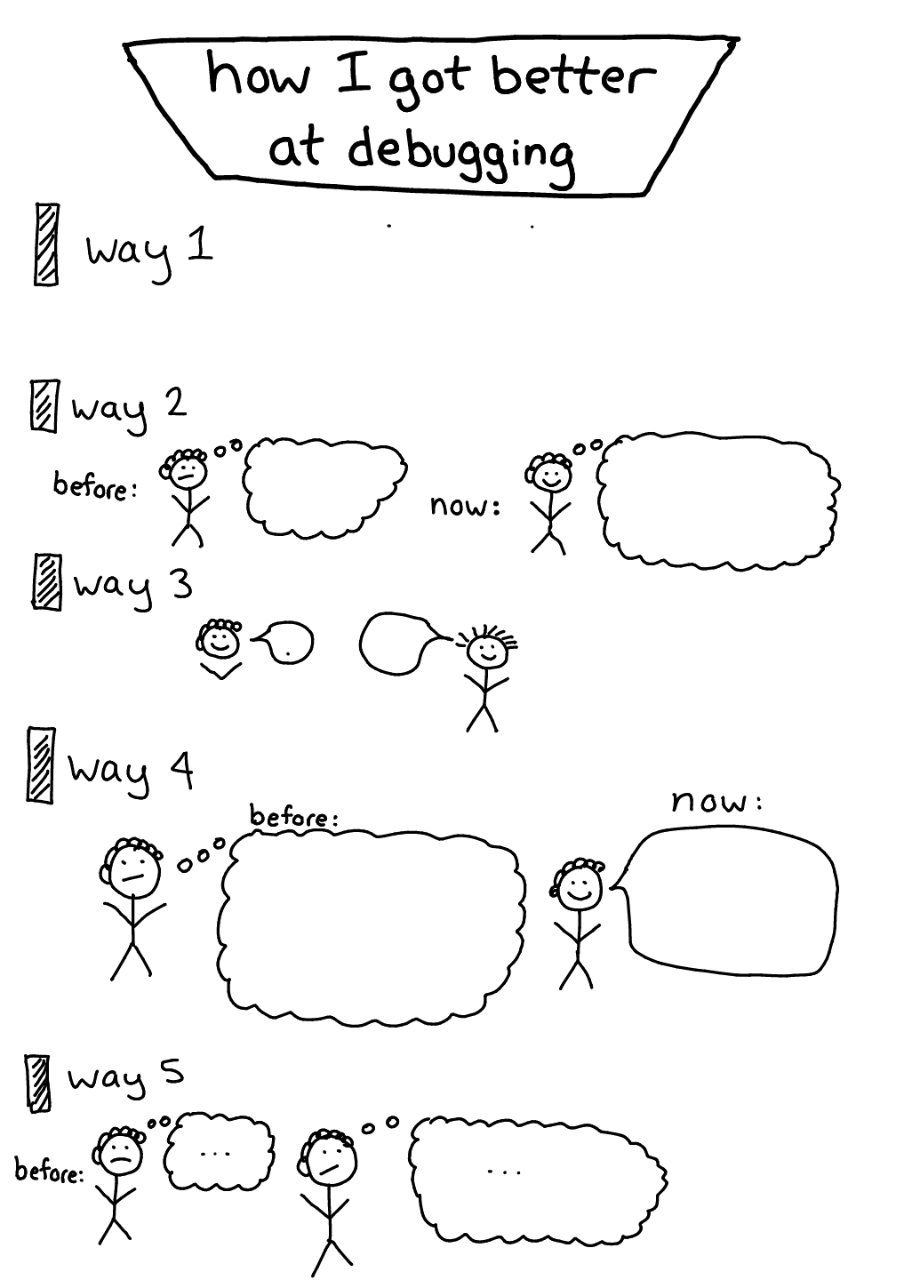 how I got better
at debugging
way 1
way 2
before:
now:
way 3
way 4
before:
now:
way 5
before:
...
...